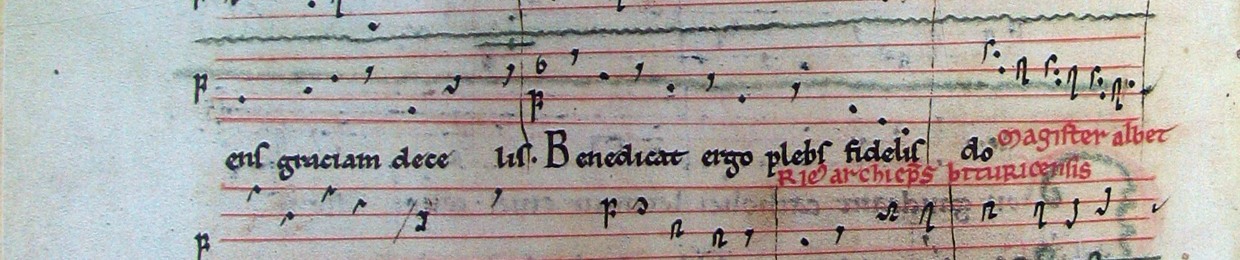 ens graciam dece lis. Benedicat ergo plebs fidelis do Magister albert
archiep̄s bituricensis